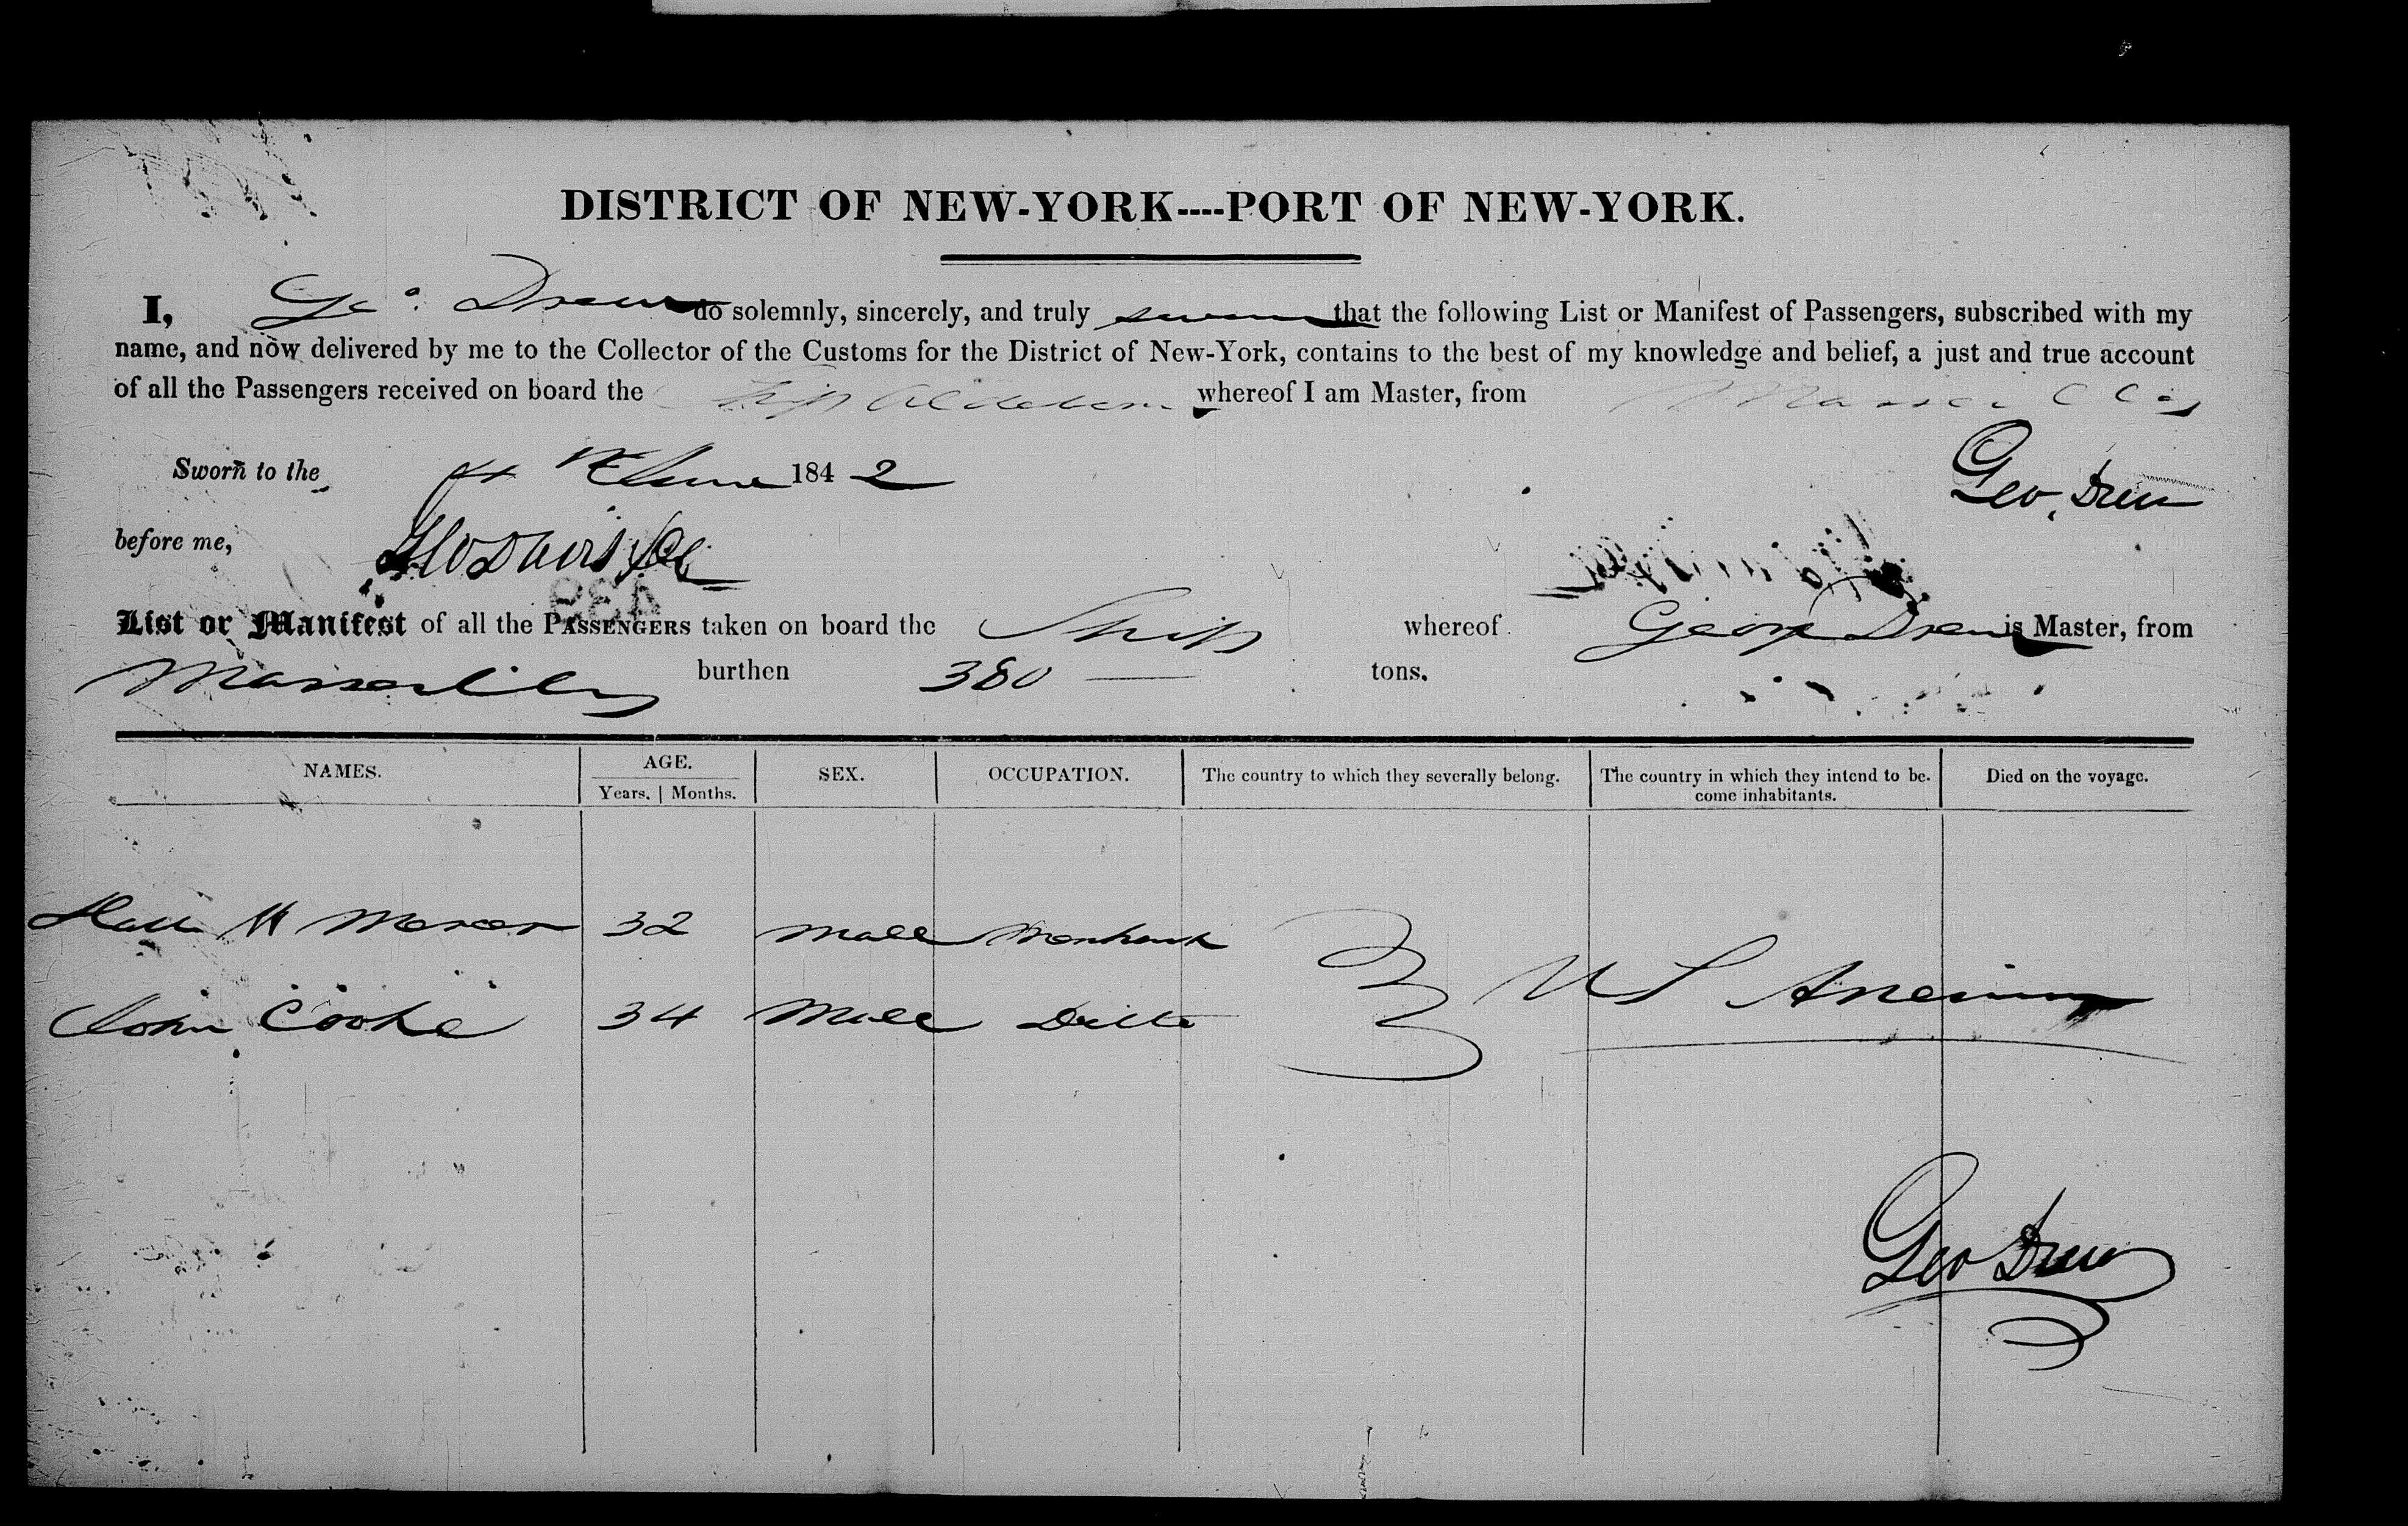 DISTRICT OF NEW-YORK----PORT OF NEW-YORK.
I, Geo. Drew do solemnly, sincerely, and truly swear that the following List or Manifest of Passengers, subscribed with my
name, and now delivered by me to the Collector of the Customs for the District of New-York, contains to the best of my knowledge and belief, a just and true account
of all the Passengers received on board the Ship whereof I am Master, from Marseilles
Sworn to the June 1842 Geo. Drew
before me,
List or Manifest of all the PASSENGERS taken on board the Ship whereof George Drew is Master, from
Marseilles burthen 380 tons.
NAMES. AGE. Years. | Months. SEX. OCCUPATION. The country to which they severally belong. The country in which they intend to become inhabitants. Died on the voyage.
32 Male Merchant
John Cooke 34 Male Ditto U S America
Geo Drew